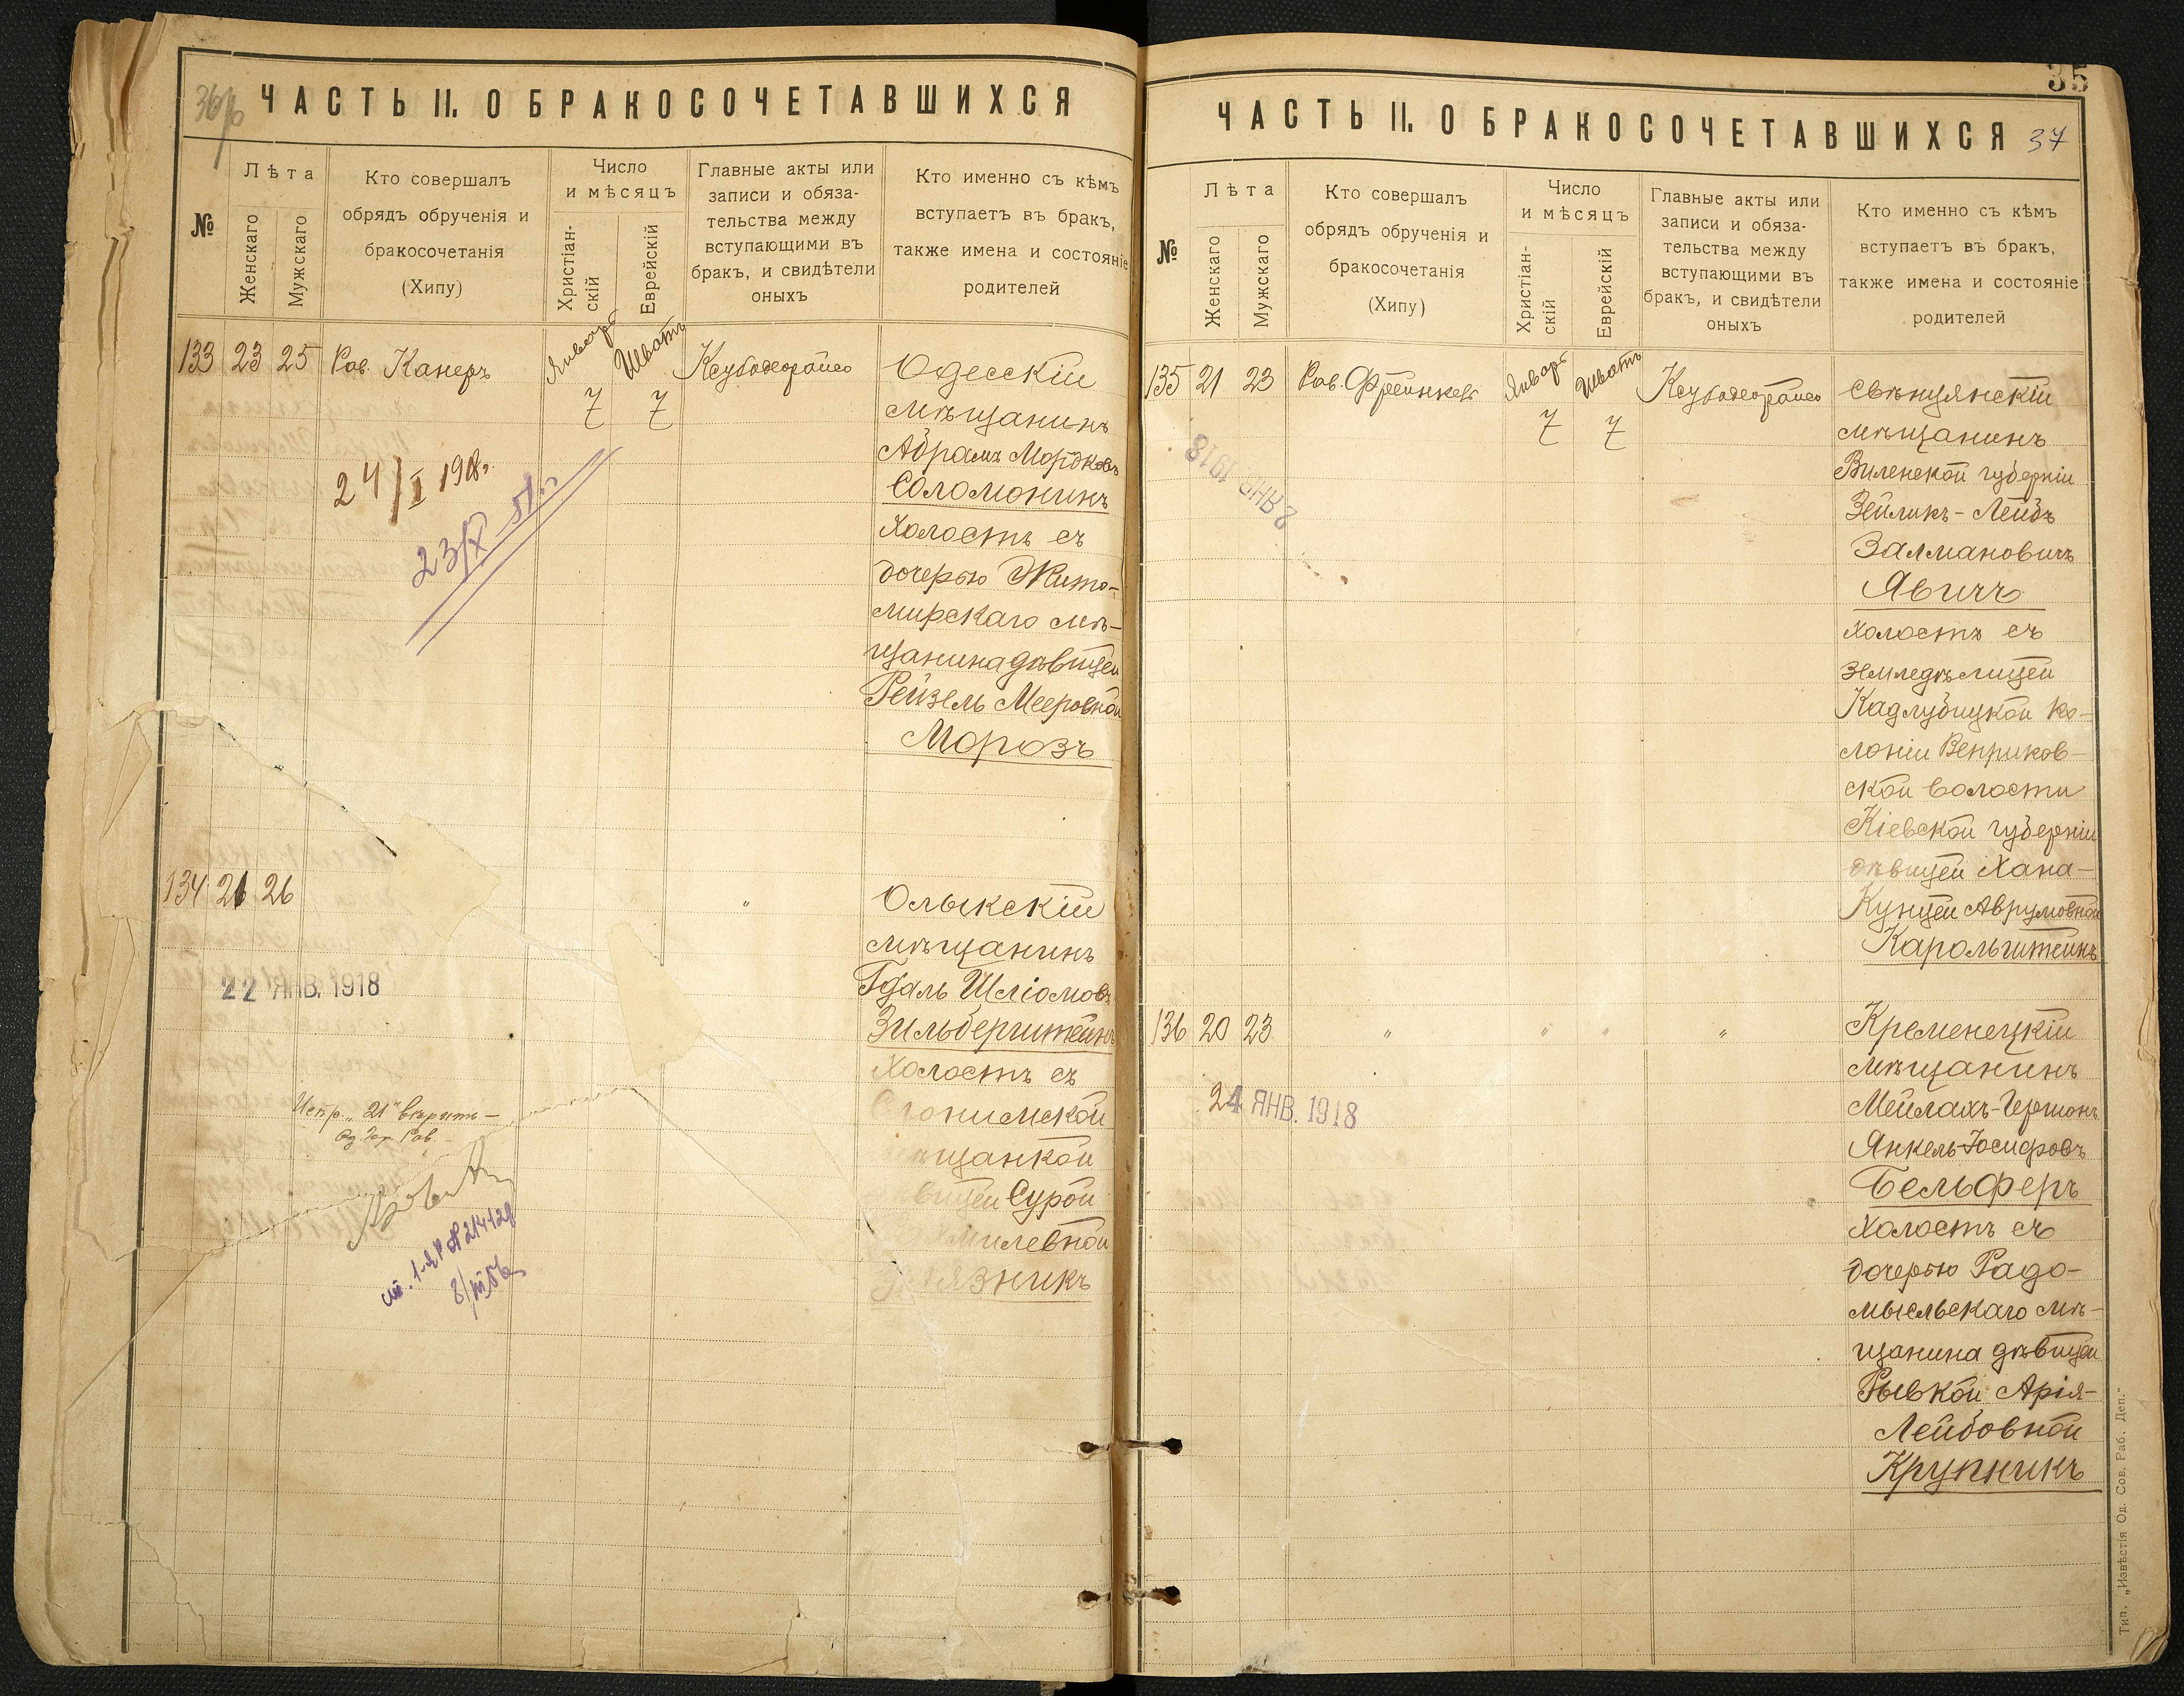 ЧАСТЬ II. О БРАКОСОЧЕТАВШИХСЯ
№
Лѣта
Женскаго
Мужскаго
Кто совершалъ
обрядъ обрученія и
бракосочетанія
(Хипу)
Число
и мѣсяцъ
Христіан-
скій
Еврейскій
Главные акты или
записи и обяза-
тельства между
вступающими въ
бракъ, и свидѣтели
оныхъ
Кто именно съ кѣмъ
вступаетъ въ бракъ,
также имена и состояніе
родителей
133 23 25 Рав. Канеръ
Январь
7
Шватъ
7
Ксубодеорайсо
Одесскій
мѣщанинъ
Абрамъ Мордковъ
Соломонинъ
холостъ съ
дочерью Жито-
мирскаго мѣ-
щанина дѣвицей
Рейзель Мееровной
Морозъ
24/I 1918г.
23/X-51г.
134 21 26 "
Олыкскій
мѣщанинъ
Гдаль Шліомовъ
Зильберштейнъ
холостъ съ
Слонимской
щанкой
вицей Сурой
милевной
язникъ
22 ЯНВ. 1918
Испр. „21" вѣрить-
Од. Гор. Рав.-
35
ЧАСТЬ II. О БРАКОСОЧЕТАВШИХСЯ 37
№
Лѣта
Женскаго
Мужскаго
Кто совершалъ
обрядъ обрученія и
бракосочетанія
(Хипу)
Число
и мѣсяцъ
Христіан-
скій
Еврейскій
Главные акты или
записи и обяза-
тельства между
вступающими въ
бракъ, и свидѣтели
оныхъ
Кто именно съ кѣмъ
вступаетъ въ бракъ,
также имена и состояніе
родителей
135 21 23 Рав. Фреинкель
Январь
7
Шватъ
7
Ксубодеорайсо
Свѣнцянскій
мѣщанинъ
Виленской губерніи
Зейликъ-Лейбъ
Залмановичъ
Явичъ
холостъ съ
земледѣлицей
Кадлубицкой ко-
лоніи Веприков-
ской волости
Кіевской губерніи
дѣвицей Хана-
Кунцей Аврумовной
Карольштейнъ
2 ЯНВ 1918
136 20 23 " " " "
Кременецкій
мѣщанинъ
Мейлахъ-Гершонъ
Янкель-Іосифовъ
Бельферъ
холостъ съ
дочерью Радо-
мысльскаго мѣ-
щанина дѣвицей
Рывкой Арія-
Лейбовной
Крупникъ
24 ЯНВ. 1918
Тип. „Извѣстія Од. Сов. Раб. Деп."